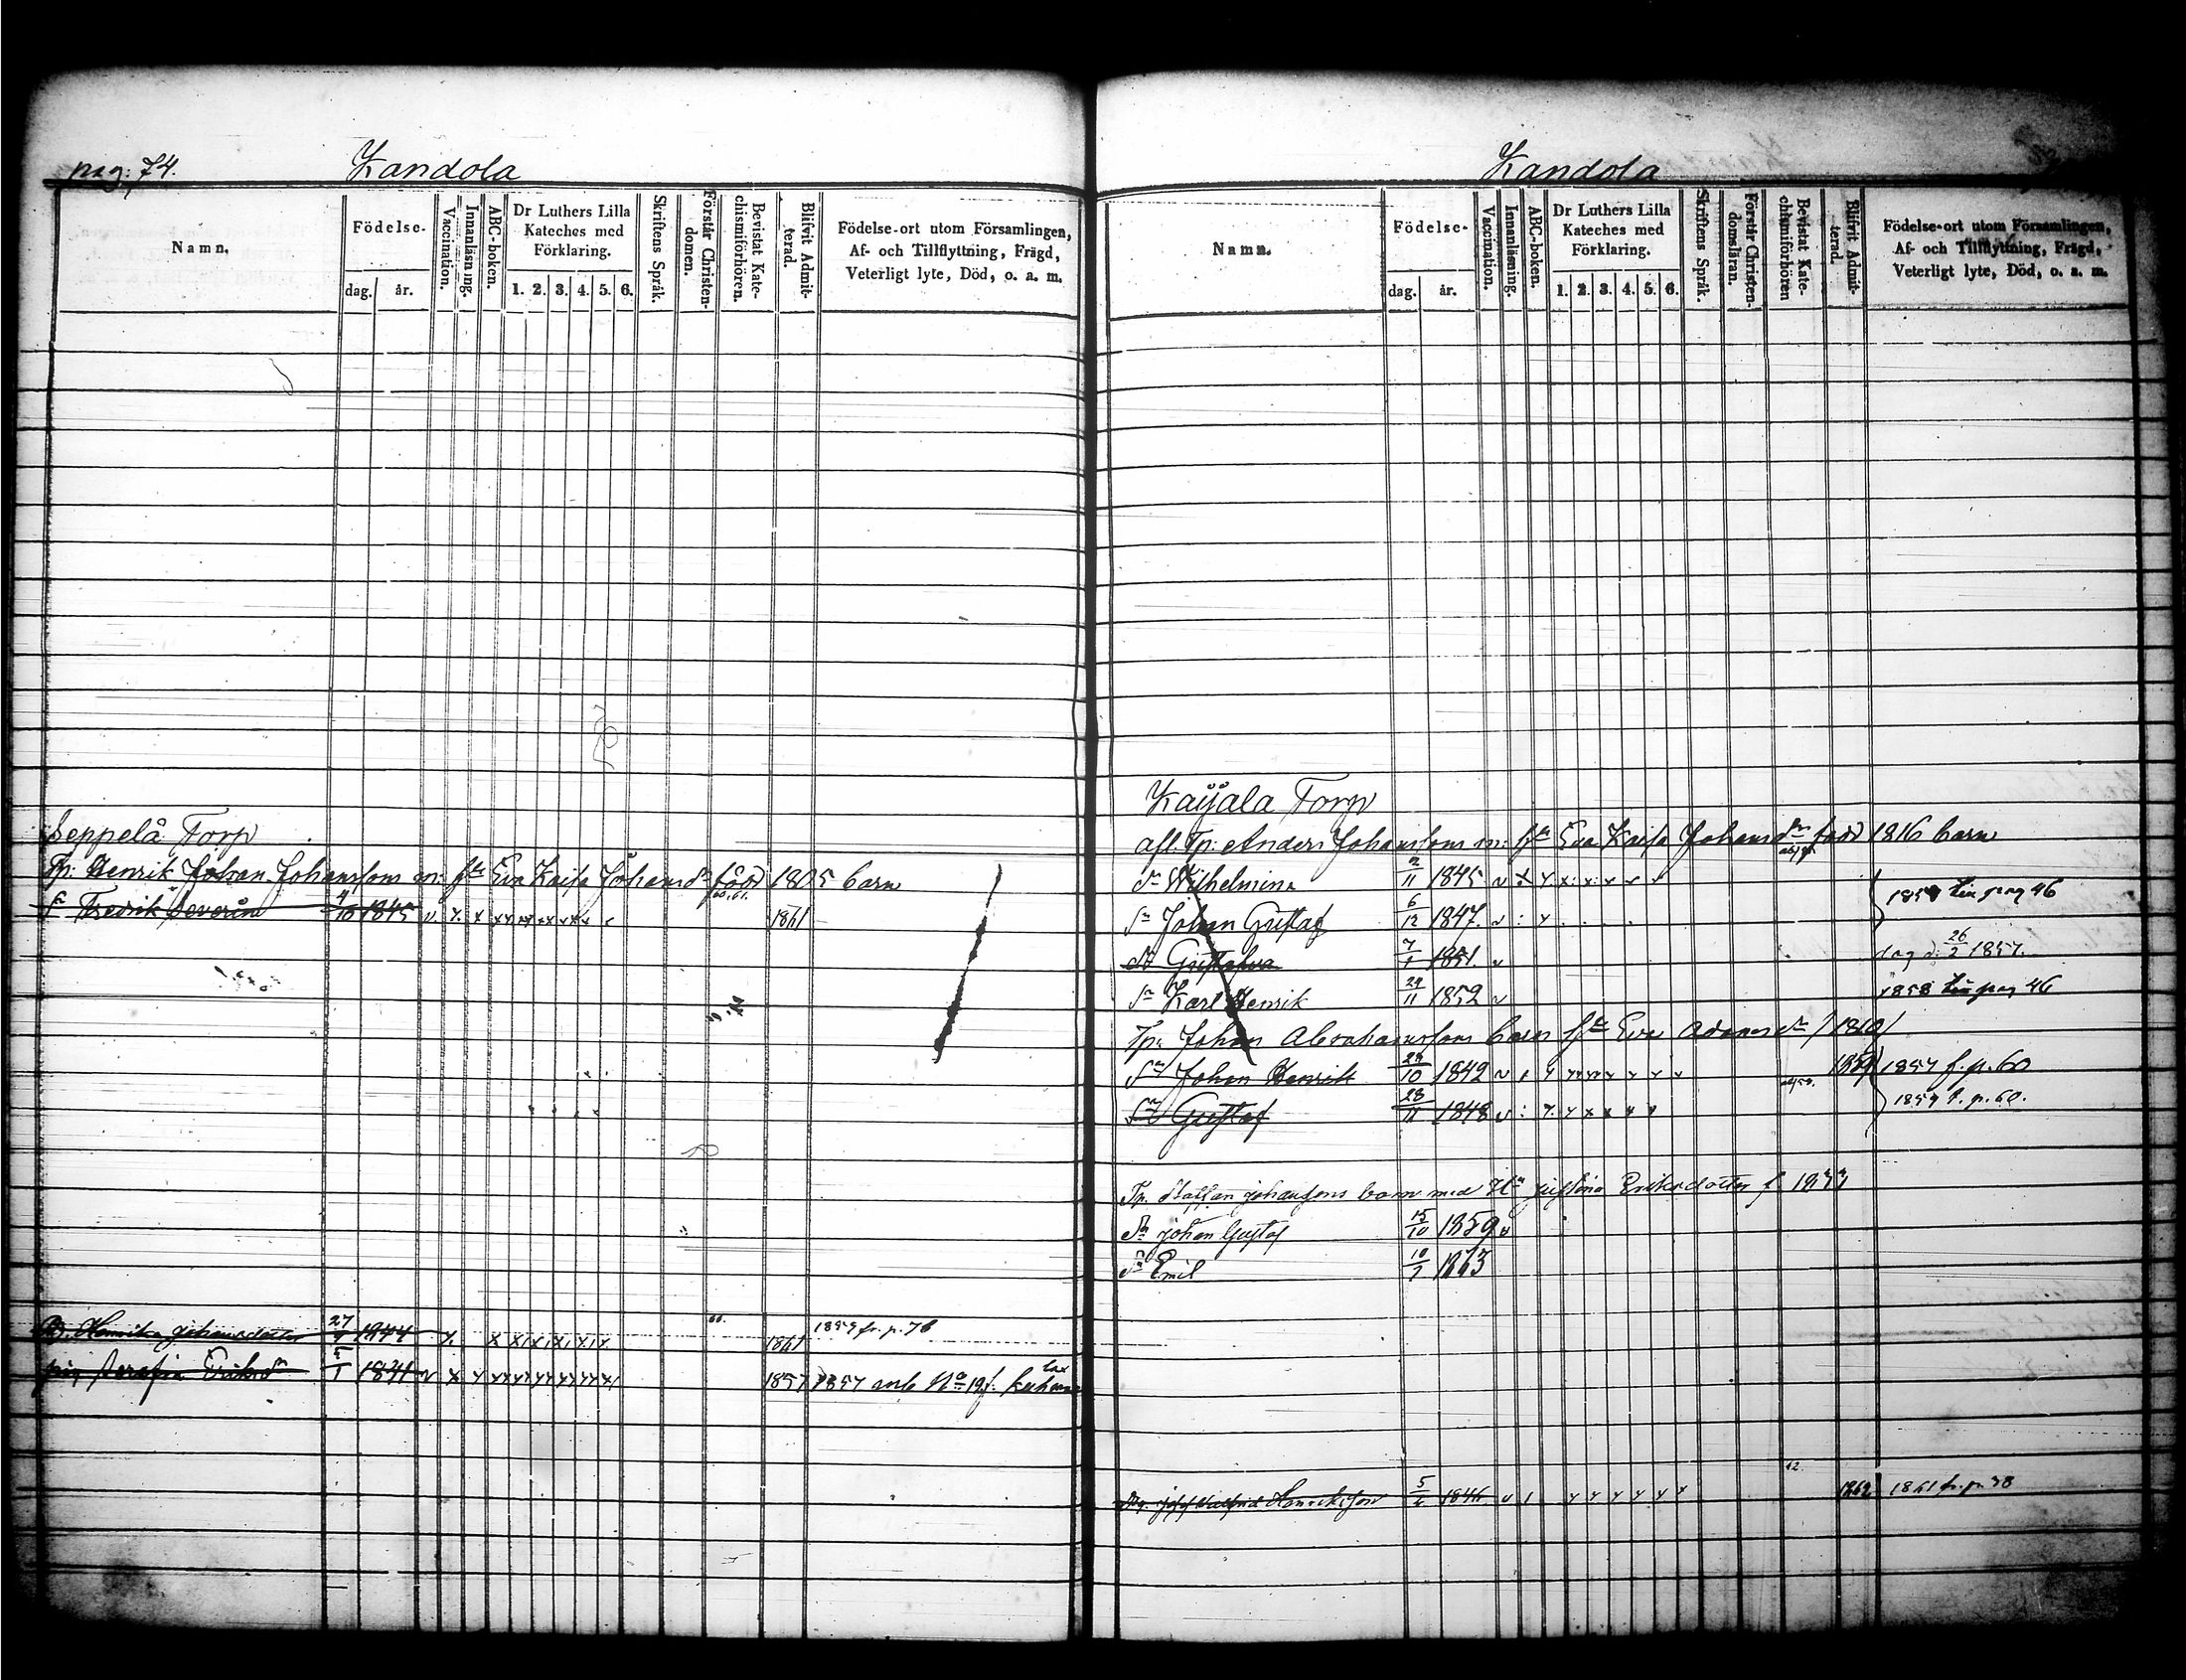 pag: 74. Kandola
Namn. Födelse- dag. år. Vaccination. Innanläsning. ABC-boken. Dr Luthers Lilla Kateches med Förklaring. 1. 2. 3. 4. 5. 6. Skriftens Språk. Förstår Christendomen. Bevistat Katechismiförhören. Blifvit Admitterad. Födelse-ort utom Församlingen, Af- och Tillflyttning, Frägd, Veterligt lyte, Död, o. a. m.
Seppelä Torp
Tp: Henrik Johan Johanssons m: hu Eva Kaisa Johansdr född 1805 barn
Fredrik Severin 4/10 1845 1861
Henrika Johansdotter 27 1844 60. 1861 1859 fr. p. 76
pig Serafia Eriksdr 1 1841 1857 1857 Nº 19 f.
Kandola
Namn. Födelse- dag. år. Vaccination. Innanläsning. ABC-boken. Dr Luthers Lilla Kateches med Förklaring. 1. 2. 3. 4. 5. 6. Skriftens Språk. Förstår Christendomsläran. Bevistat Katechismiförhören Blifvit Admitterad. Födelse-ort utom Församlingen, Af- och Tillflyttning, Frägd, Veterligt lyte, Död, o. a. m.
Kaijala Torp
afl. Tp: Anders Johanssons m: hu Eva Kaisa Johansdr född 1816 barn
dr Wilhelmina 2/11 1845
Sn Johan Gustaf 6/12 1847. pag 46
dr Gustafva 7/1 1851. d: 26/2 1857.
Sn Karl Henrik 29/11 1852 1858 pag 46
Tp: Johan Abrahamssons barn hu Eva Adamsdr /1810/
Sn Johan Henrik 29/10 1842 1859 1857 f. p. 60
Sn Gustaf 28/11 1848 1857 f. p. 60.
Tp. Staffan Johanssons barn med Hu Justina Eriksdotter f 1833
Sn Johan Gustaf 15/10 1859
Sn Emil 10/7 1863
Josef Walfrid Henriksson 5/4 1846 62 1862 1861 fr. p. 78